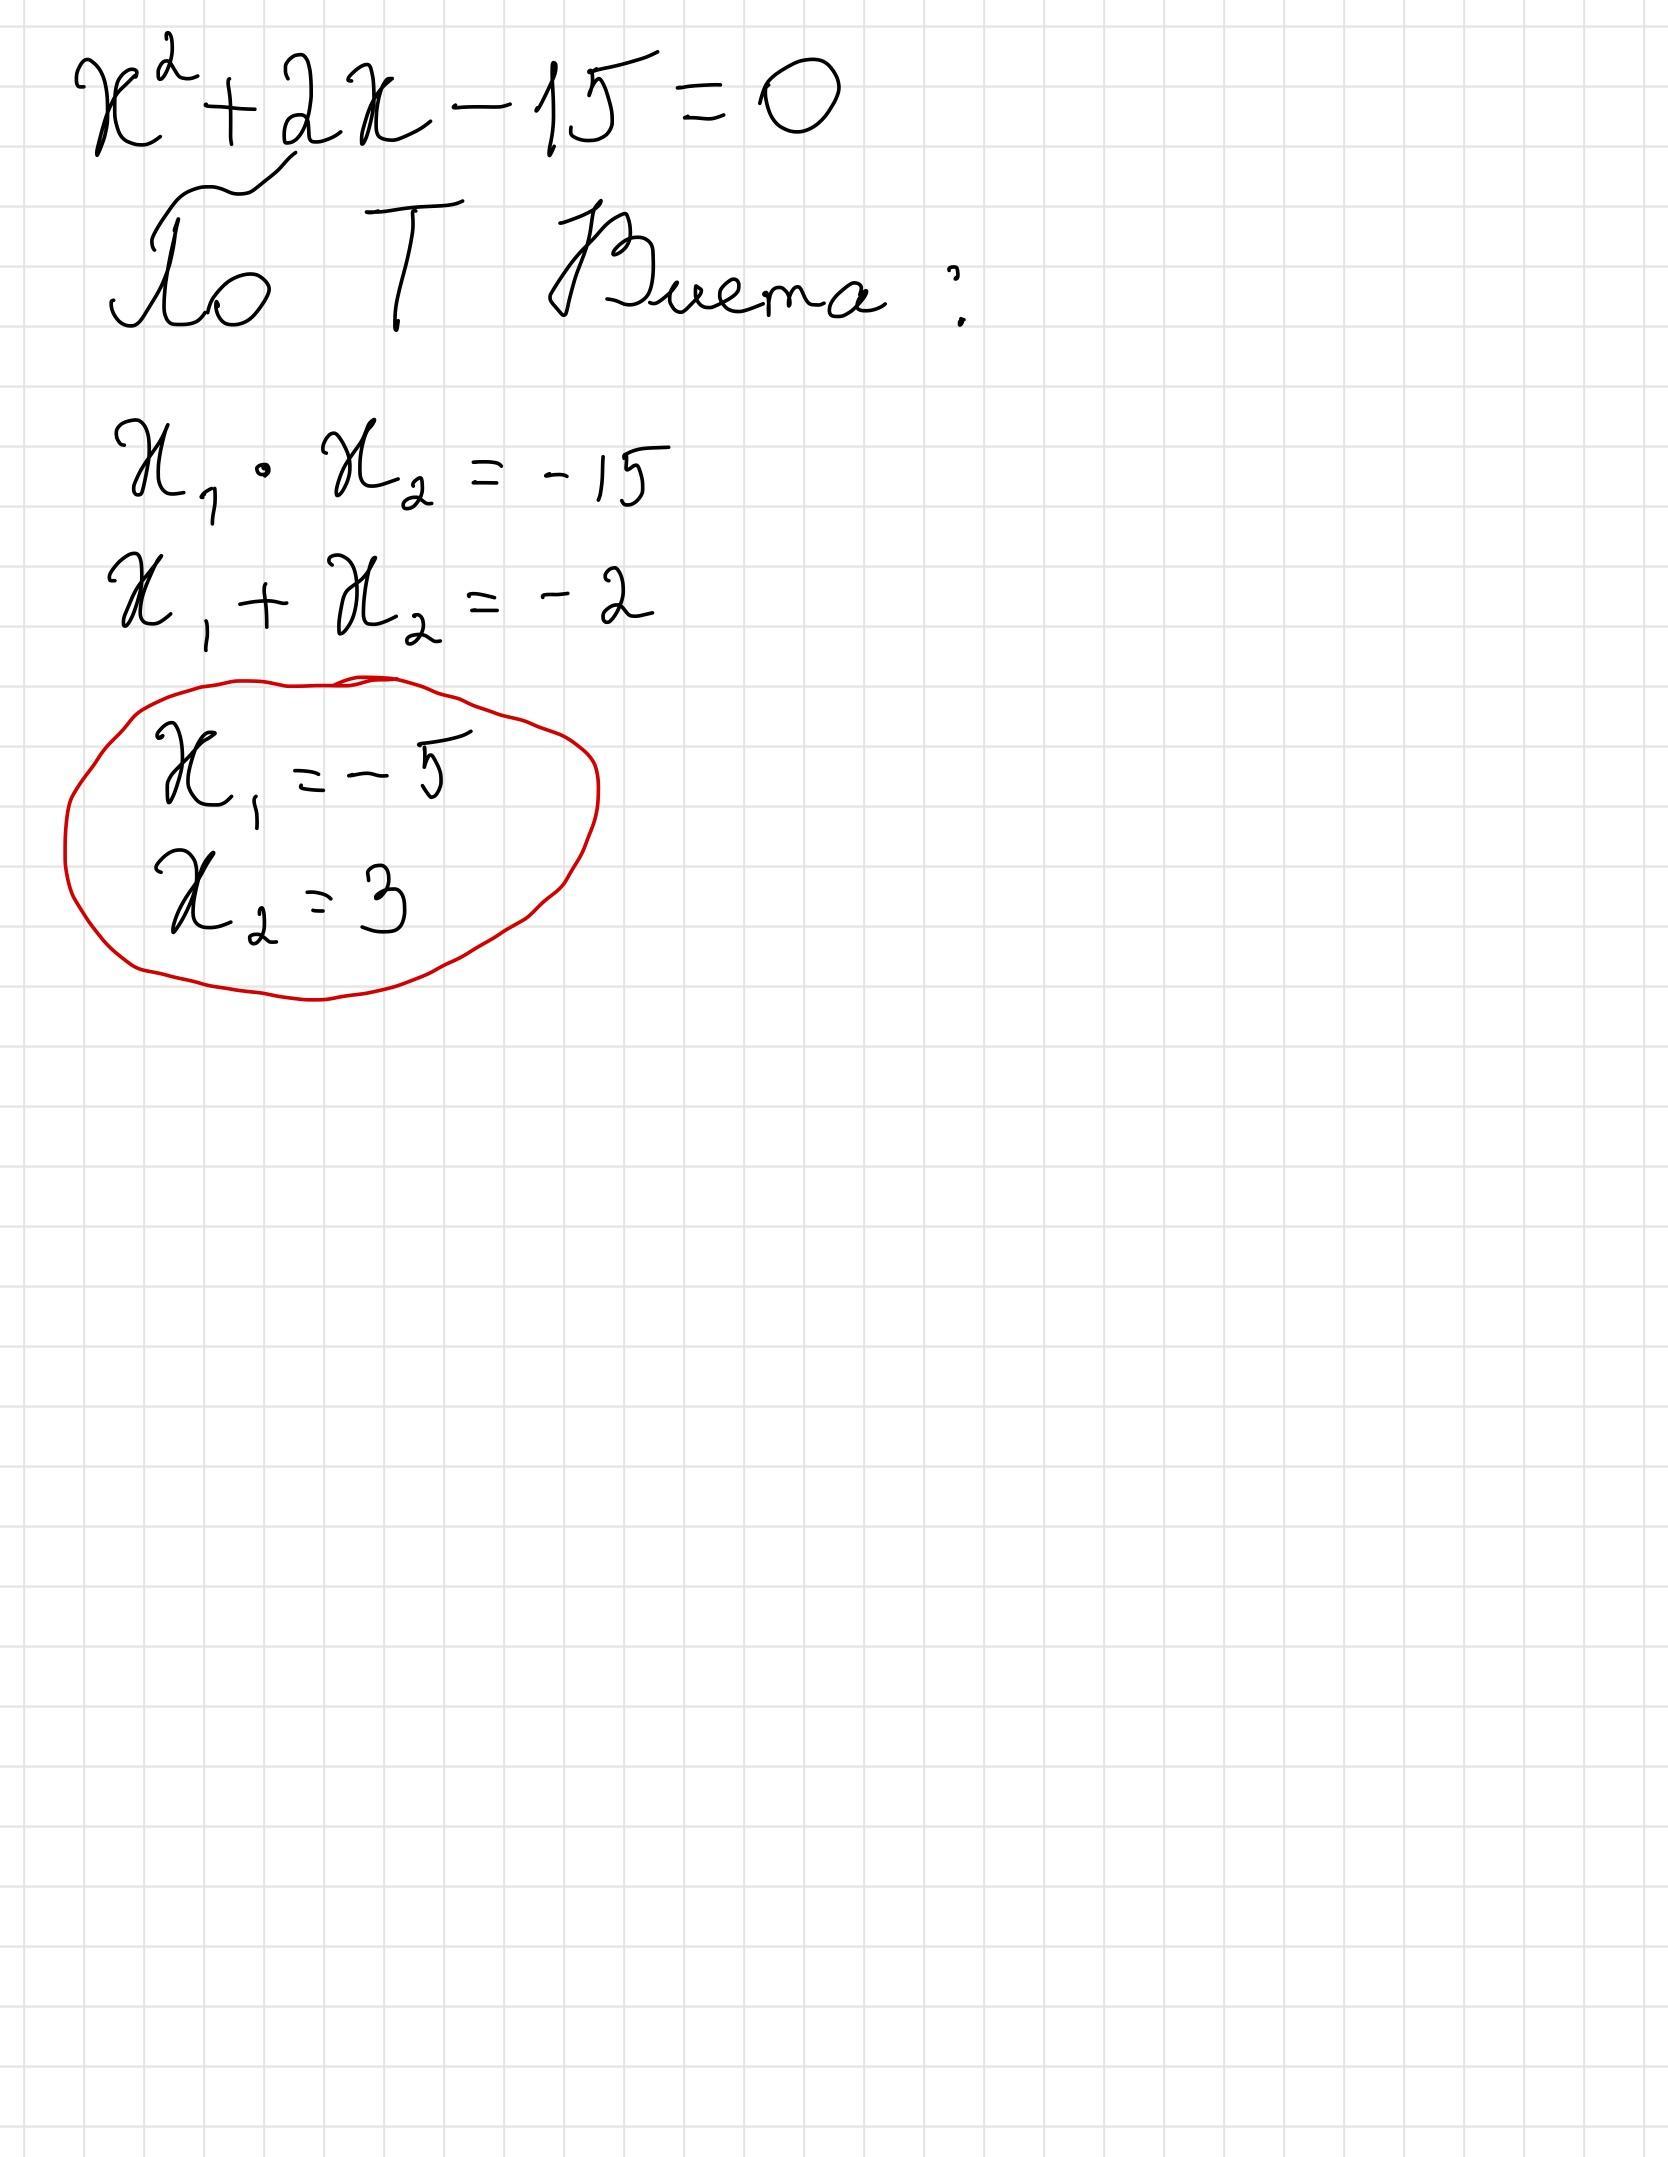 x² + 2x - 15 = 0
По Т Виета :
x₁ · x₂ = - 15
x₁ + x₂ = - 2
x₁ = - 5
x₂ = 3